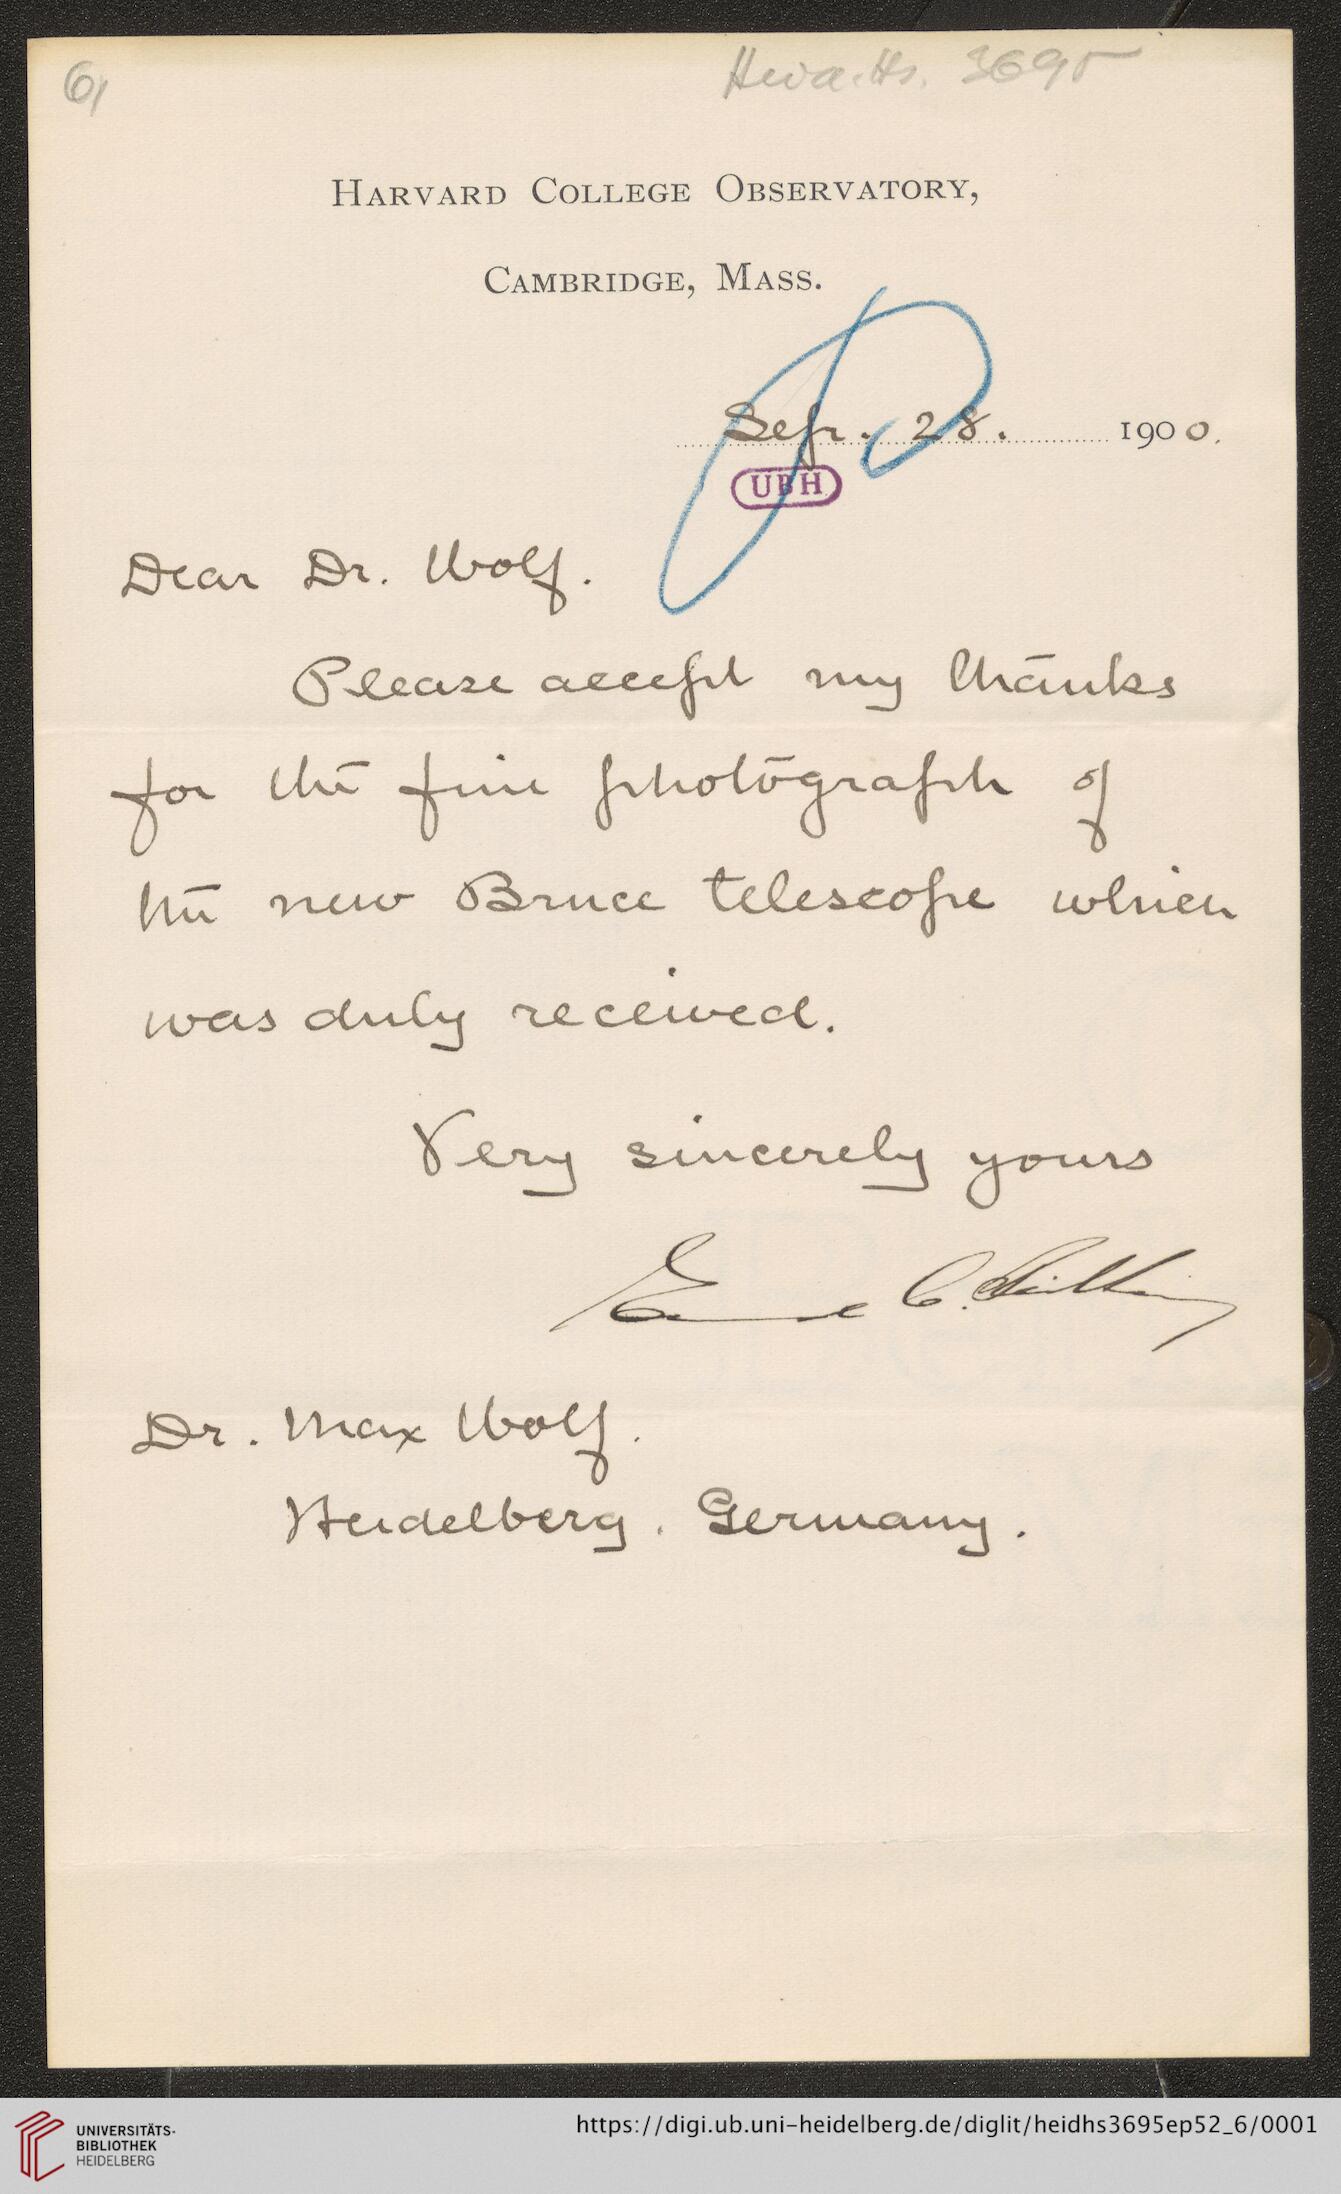 6)
Heid. Hs. 3695
HARVARD COLLEGE OBSERVATORY,
CAMBRIDGE, MASS.
Sep. 28. 1900.
UBH
Dear Dr. Wolf.
Please accept my thanks
for the fine photograph of
the new Bruce telescope which
was duly received.
Very sincerely yours
Edward C. Pickering
Dr. Max Wolf.
Heidelberg. Germany.
UNIVERSITÄTS-
BIBLIOTHEK
HEIDELBERG
https://digi.ub.uni-heidelberg.de/diglit/heidhs3695ep52_6/0001